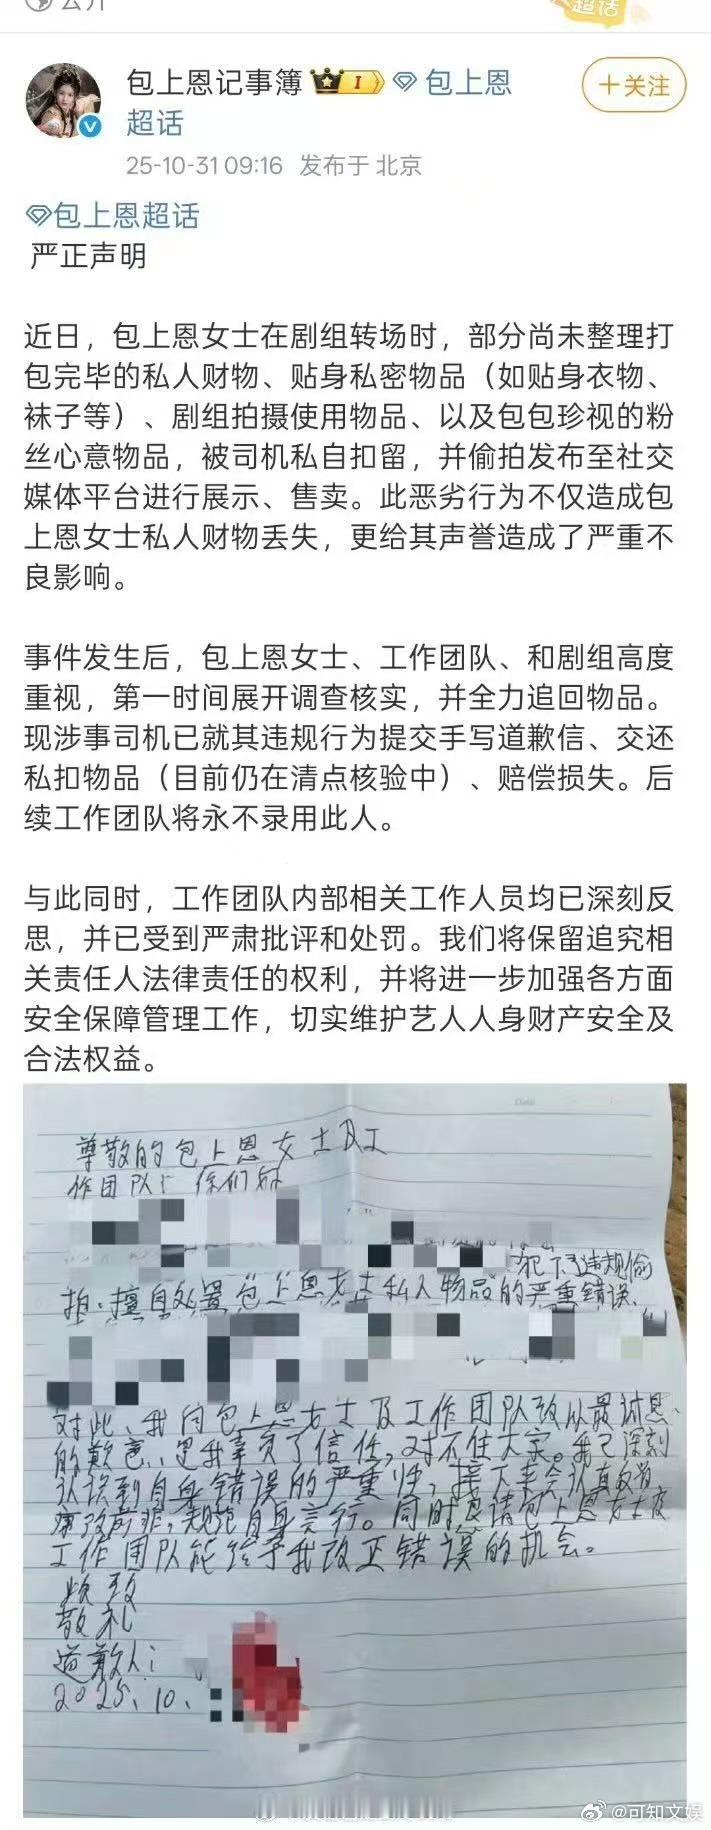 公开
超话
包上恩记事簿 I 包上恩
超话
+关注
25-10-31 09:16 发布于 北京
包上恩超话
严正声明
近日，包上恩女士在剧组转场时，部分尚未整理打
包完毕的私人财物、贴身私密物品（如贴身衣物、
袜子等）、剧组拍摄使用物品、以及包包珍视的粉
丝心意物品，被司机私自扣留，并偷拍发布至社交
媒体平台进行展示、售卖。此恶劣行为不仅造成包
上恩女士私人财物丢失，更给其声誉造成了严重不
良影响。
事件发生后，包上恩女士、工作团队、和剧组高度
重视，第一时间展开调查核实，并全力追回物品。
现涉事司机已就其违规行为提交手写道歉信、交还
私扣物品（目前仍在清点核验中）、赔偿损失。后
续工作团队将永不录用此人。
与此同时，工作团队内部相关工作人员均已深刻反
思，并已受到严肃批评和处罚。我们将保留追究相
关责任人法律责任的权利，并将进一步加强各方面
安全保障管理工作，切实维护艺人人身财产安全及
合法权益。
尊敬的包上恩女士及工
作团队：你们好
犯下违规偷
拍、擅自处置包上恩女士私人物品的严重错误
对此、我向包上恩女士及工作团队致以最诚恳
的歉意、是我辜负了信任，对不住大家。我已深刻
认识到自身错误的严重性，接下来会认真反省
痛改前非，规范自身言行。同时恳请包上恩女士及
工作团队能给予我改正错误的机会。
敬礼
道歉人：
2025.10.
@可知文娱